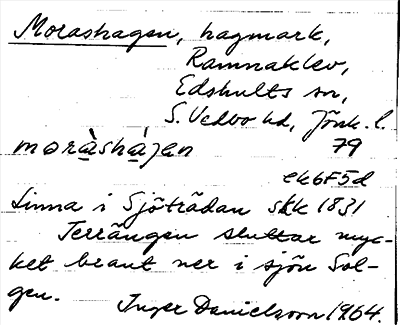 Morashagen, hagmark,
Ramnaklev,
Edshults sn,
S. Vedbo hd, Jönk. l.
moràshájen 79
ek6F5d
Linna i Sjöträdan skk 1831
Terrängen sluttar myc-
ket brant ner i sjön Sol-
gen.
Inger Danielsson 1964.